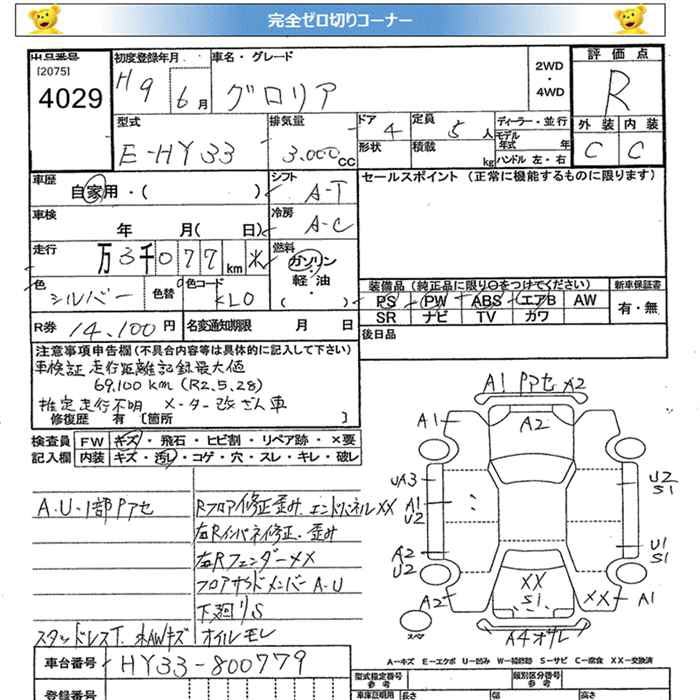 完全ゼロ切りコーナー
出品番号 初度登録年月 車名・グレード 2WD・4WD 評価点
[2075]
4029 H9 6月 グロリア R
型式 排気量 ドア 4 定員 5人 ディーラー・並行 外装 内装
E-HY33 3.000cc 形状 積載 kg モデル年式 年 ハンドル 左・右 C C
車歴 自家用・( ) シフト A-T セールスポイント (正常に機能するものに限ります)
車検 年 月( 日) 冷房 A-C
走行 万3千077km 燃料 ガソリン・軽油・( )
色 シルバー 色替 色コード KL0
装備品(純正品に限り○をつけてください) 新車保証書
PS PW ABS エアB AW 有・無
SR ナビ TV カワ
R券 14.100円 名変通知期限 月 日 後日品
注意事項申告欄(不具合内容等は具体的に記入して下さい)
車検証走行距離記録最大値
69,100km (R2.5.28)
推定走行不明 メーター改ざん車
修復歴 有 [箇所 ]
検査員 FW キズ・飛石・ヒビ割・リペア跡・×要
記入欄 内装 キズ・汚レ・コゲ・穴・スレ・キレ・破レ
A.U.1部Pアセ Rフロア修正歪み エンドパネルXX
右Rインパネ修正.歪み
右RフェンダーXX
フロアサイドメンバーA.U
下廻りS
スタッドレスT. AWキズ オイルモレ
A1 Pアセ A2
A1 A2
UA3 U2 S1
A1 U2
A2 U2 U1 S1
XX S1
A2 XX A1
スペア A4オサレ
A-キズ E-エクボ U-凹み W-補修跡 S-サビ C-腐食 XX-交換済
車台番号 HY33-800779
型式指定番号 参考 類別区分番号 参考
登録番号 車庫証明用 参考 長さ 幅 高さ